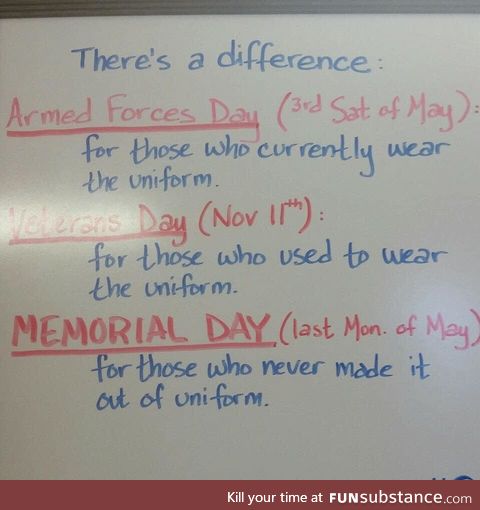 There's a difference:
Armed Forces Day (3rd Sat of May):
for those who currently wear
the uniform.
Veterans Day (Nov 11th):
for those who used to wear
the uniform.
MEMORIAL DAY (last Mon. of May)
for those who never made it
out of uniform.
Kill your time at FUNsubstance.com